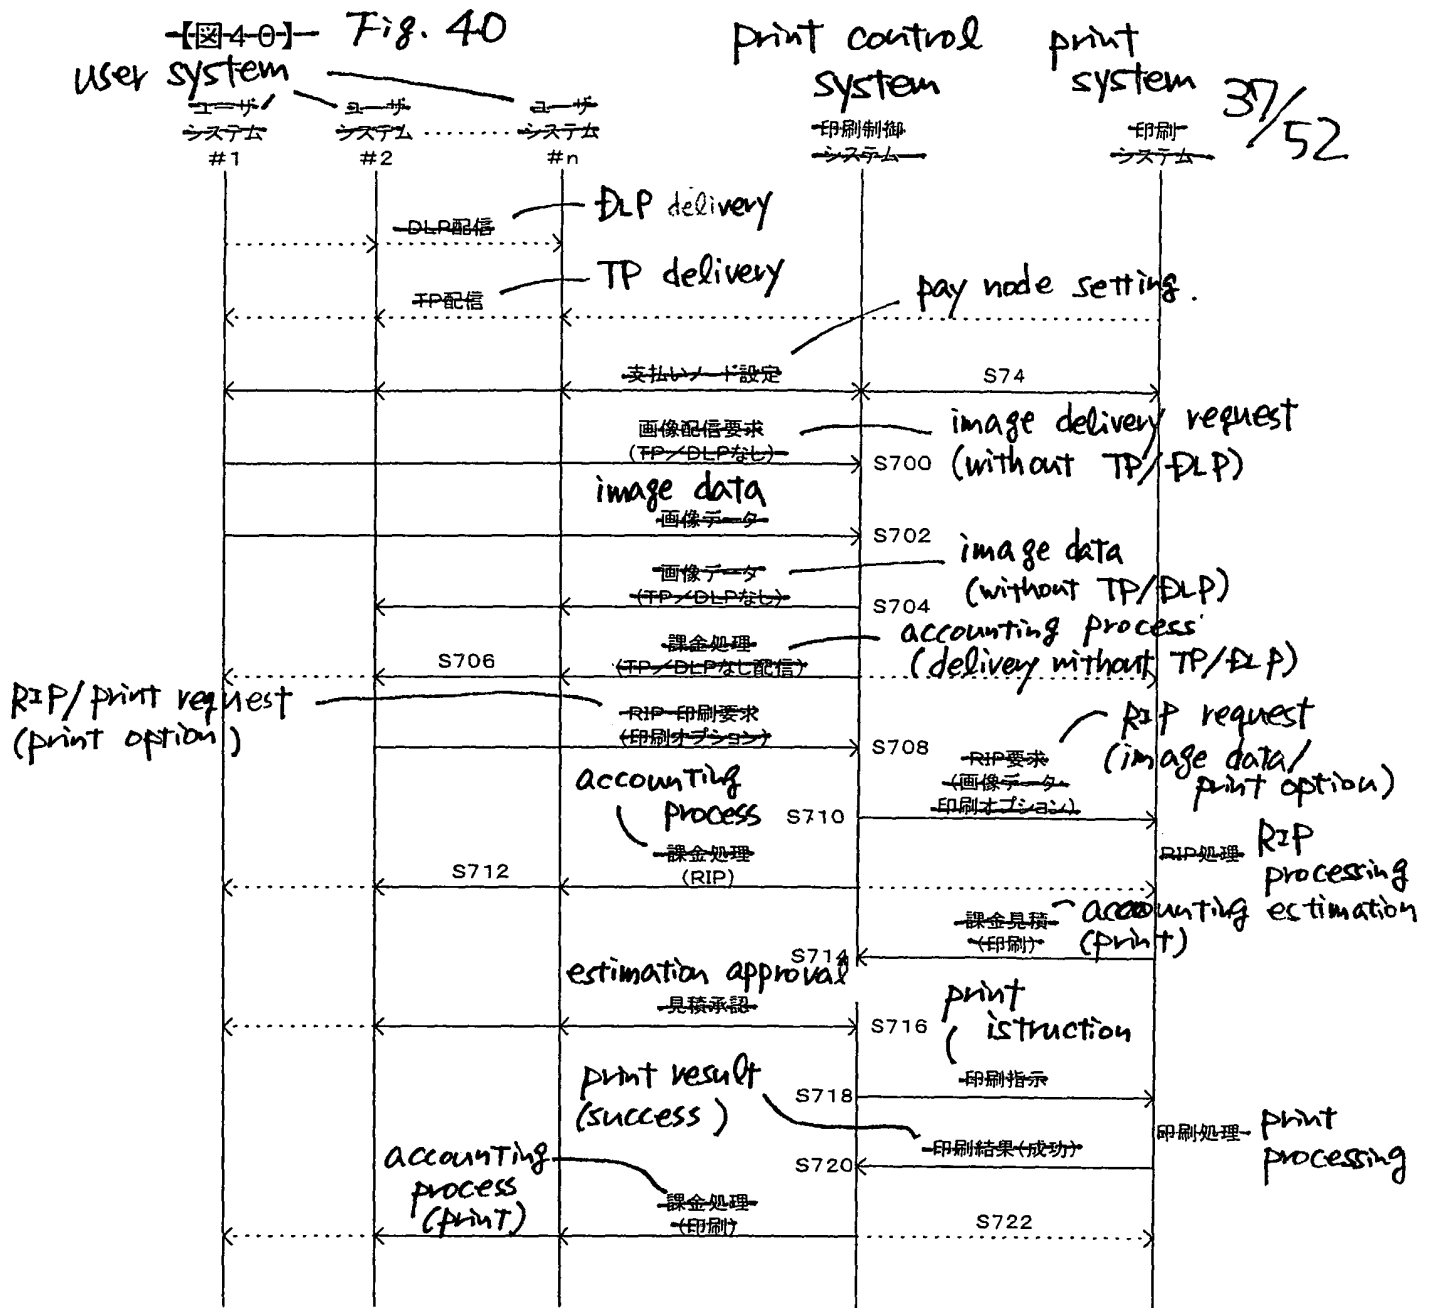 【図40】 Fig. 40
user system
print control system
print system
37/52
ユーザ システム #1
ユーザ システム #2
‥‥‥
ユーザ システム #n
印刷制御 システム
印刷 システム
DLP配信
DLP delivery
TP配信
TP delivery
pay node setting.
支払いノード設定
S74
画像配信要求
(TP/DLPなし)
S700
image delivery request
(without TP/DLP)
image data
画像データ
S702
画像データ
(TP/DLPなし)
S704
image data
(without TP/DLP)
課金処理
(TP/DLPなし配信)
S706
accounting process
(delivery without TP/DLP)
RIP/print request
(print option)
RIP・印刷要求
(印刷オプション)
S708
RIP要求
(画像データ・
印刷オプション)
RIP request
(image data/
print option)
S710
accounting
process
課金処理
(RIP)
S712
RIP処理
RIP
processing
課金見積
(印刷)
S714
accounting estimation
(print)
estimation approval
見積承認
S716
print
istruction
印刷指示
S718
print result
(success)
印刷結果(成功)
S720
印刷処理
print
processing
accounting
process
(print)
課金処理
(印刷)
S722